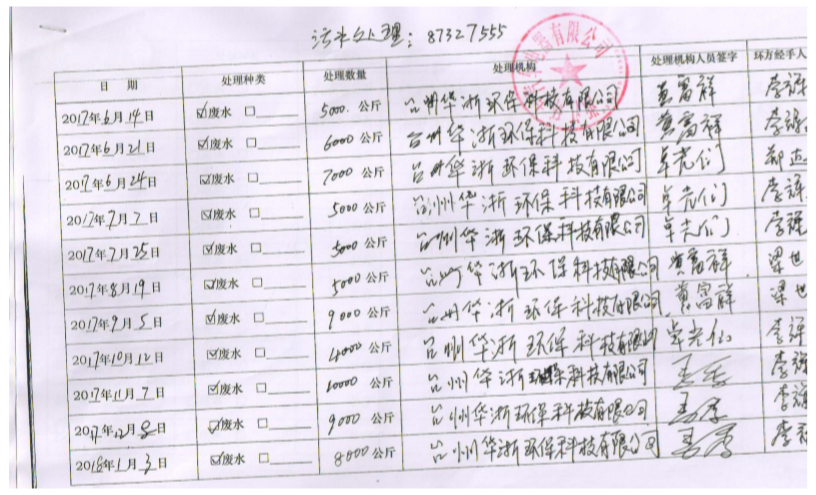 污水处理：87327555
有限公司
日 期 处理种类 处理数量 处理机构 处理机构人员签字 环方经手人
2017年6月14日 ☑废水 □____ 5000 公斤 台州华浙环保科技有限公司 黄富祥 李
2017年6月21日 ☑废水 □____ 6000 公斤 台州华浙环保科技有限公司 黄富祥 李
2017年6月24日 ☑废水 □____ 7000 公斤 台州华浙环保科技有限公司
2017年7月7日 ☑废水 □____ 5000 公斤 台州华浙环保科技有限公司 李
2017年7月25日 ☑废水 □____ 5000 公斤 台州华浙环保科技有限公司 李
2017年8月19日 ☑废水 □____ 5000 公斤 台州华浙环保科技有限公司 黄富祥 梁世
2017年9月5日 ☑废水 □____ 9000 公斤 台州华浙环保科技有限公司 黄富祥 梁世
2017年10月12日 ☑废水 □____ 公斤 台州华浙环保科技有限公司 李
2017年11月7日 ☑废水 □____ 10000 公斤 台州华浙环保科技有限公司 李
2017年12月8日 ☑废水 □____ 9000 公斤 台州华浙环保科技有限公司 李
2018年1月3日 ☑废水 □____ 8000 公斤 台州华浙环保科技有限公司 李